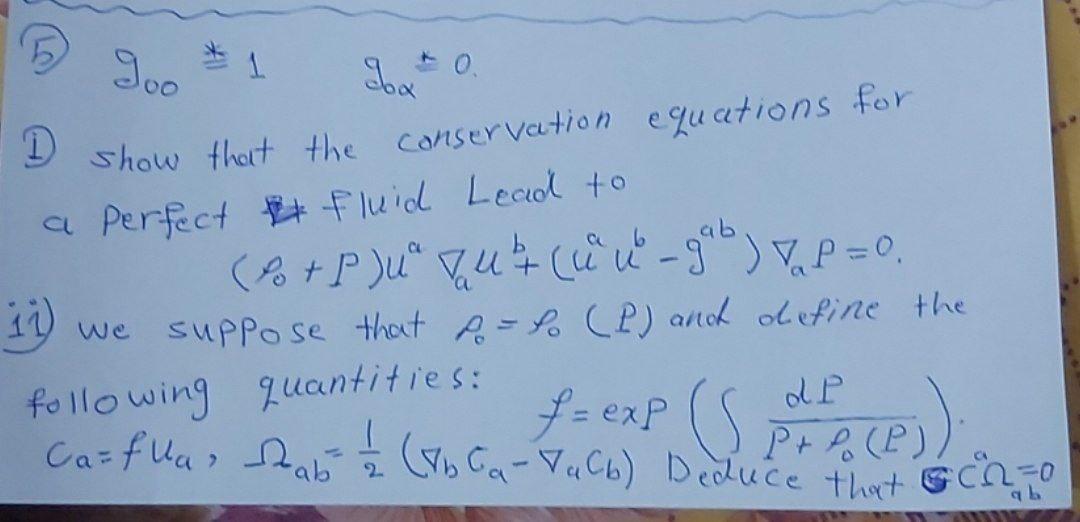 ⑤ g₀₀ *= 1 g₀α *= 0.
I) show that the conservation equations for
a perfect fluid Lead to
(ρ₀ + P)uᵃ ∇ₐuᵇ + (uᵃuᵇ - gᵃᵇ) ∇ₐP = 0.
ii) we suppose that ρ₀ = ρ₀ (P) and define the
following quantities: f = exp (∫ dP / P + ρ₀(P)).
Cₐ = f uₐ, Ωₐb = 1/2 (∇b Cₐ - ∇ₐ Cb) Deduce that CᵃΩₐb = 0